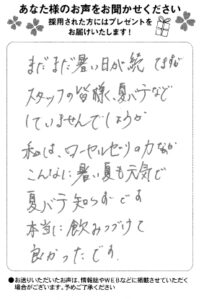 あなた様のお声をお聞かせください
採用された方にはプレゼントを
お届けいたします!
まだまだ暑い日が続てますが
スタッフの皆様、夏バテなど
していませんでしょうか
私は、ローヤルゼリーの力なのか
こんなに暑い夏も元気で
夏バテ知らずです
本当に飲みつづけて
良かったです.
●お送りいただいたお声は、情報誌やWEBなどに掲載させていただく
場合がございます。予めご了承ください